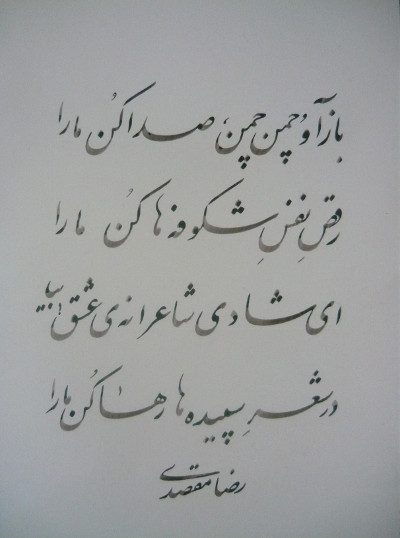 باز آ و چمن چمن، صدا کُن ما را
رقصِ نفسِ شکوفه ها کُن ما را
ای شادی شاعرانه ی عشق! بیا
در شعرِ سپیده ها رها کُن ما را
رضا مقصدی